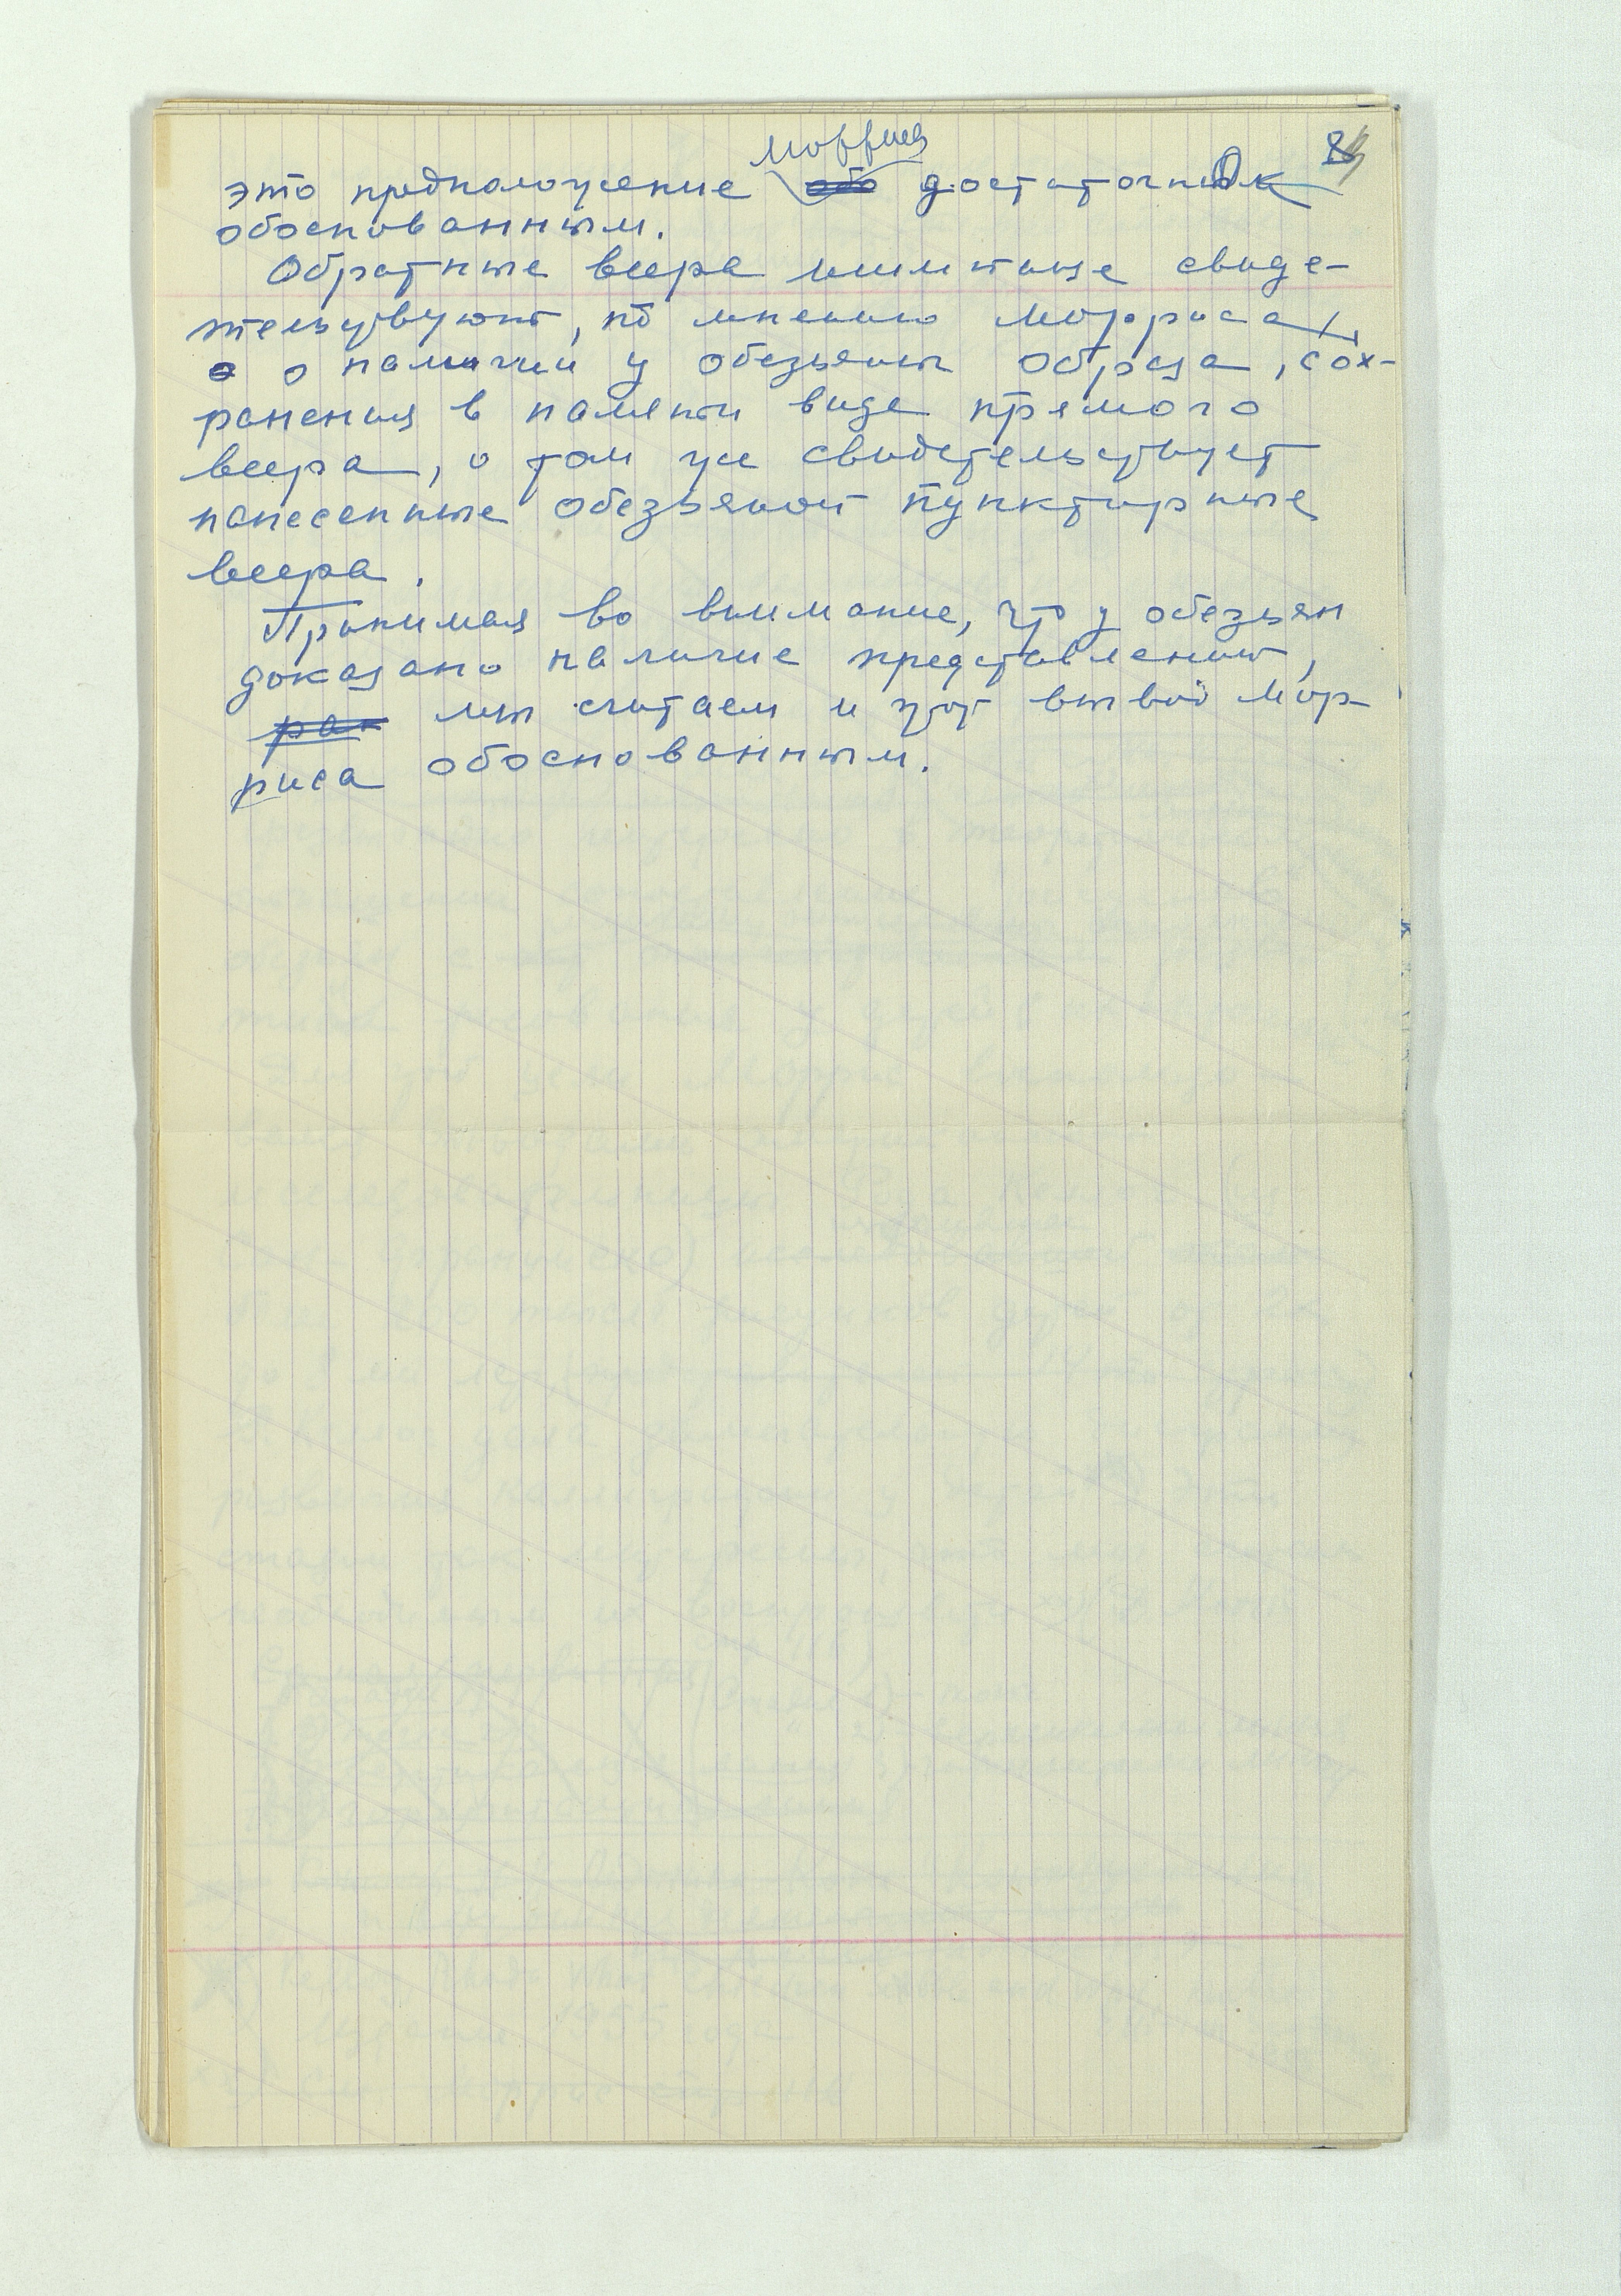 8
Морриса
это предположение достаточно
обоснованным.
Обратные веера свиде-
тельствуют, по мнению Морриса,
о наличии у обезьяны образа, сох-
ранения в памяти виде прямого
веера, о том же свидетельствует
нанесенные обезьяной пунктирные
веера.
Принимая во внимание, что у обезьян
доказано наличие представлений,
мы считаем и этот вывод Мор-
риса обоснованным.